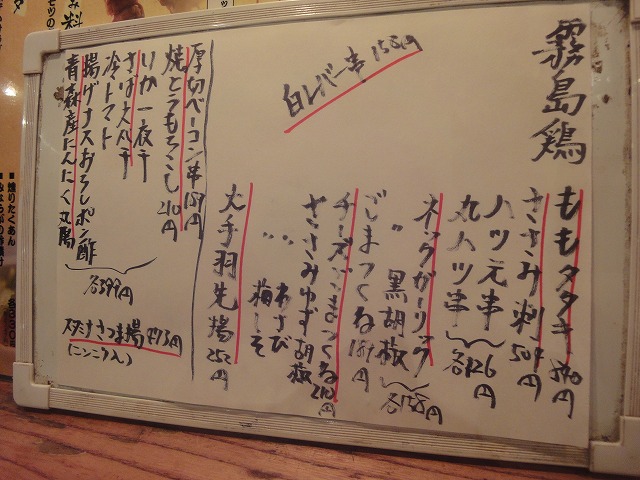 霧島鶏
ももタタキ 540円
ささみ刺 504円
ハツ元串
丸ハツ串
各126円
ネックガーリック
〃 黒胡椒
各158円
ごまつくね 189円
チーズごまつくね 210円
ささみゆず胡椒
〃 わさび
〃 梅しそ
大手羽先揚 252円
白レバー串 158円
厚切ベーコン串 189円
焼とうもろこし 210円
いか一夜干
さば大丸干
冷トマト
揚げナスおろしポン酢
青森産にんにく丸揚
各399円
さつま揚
(ニンニク入)